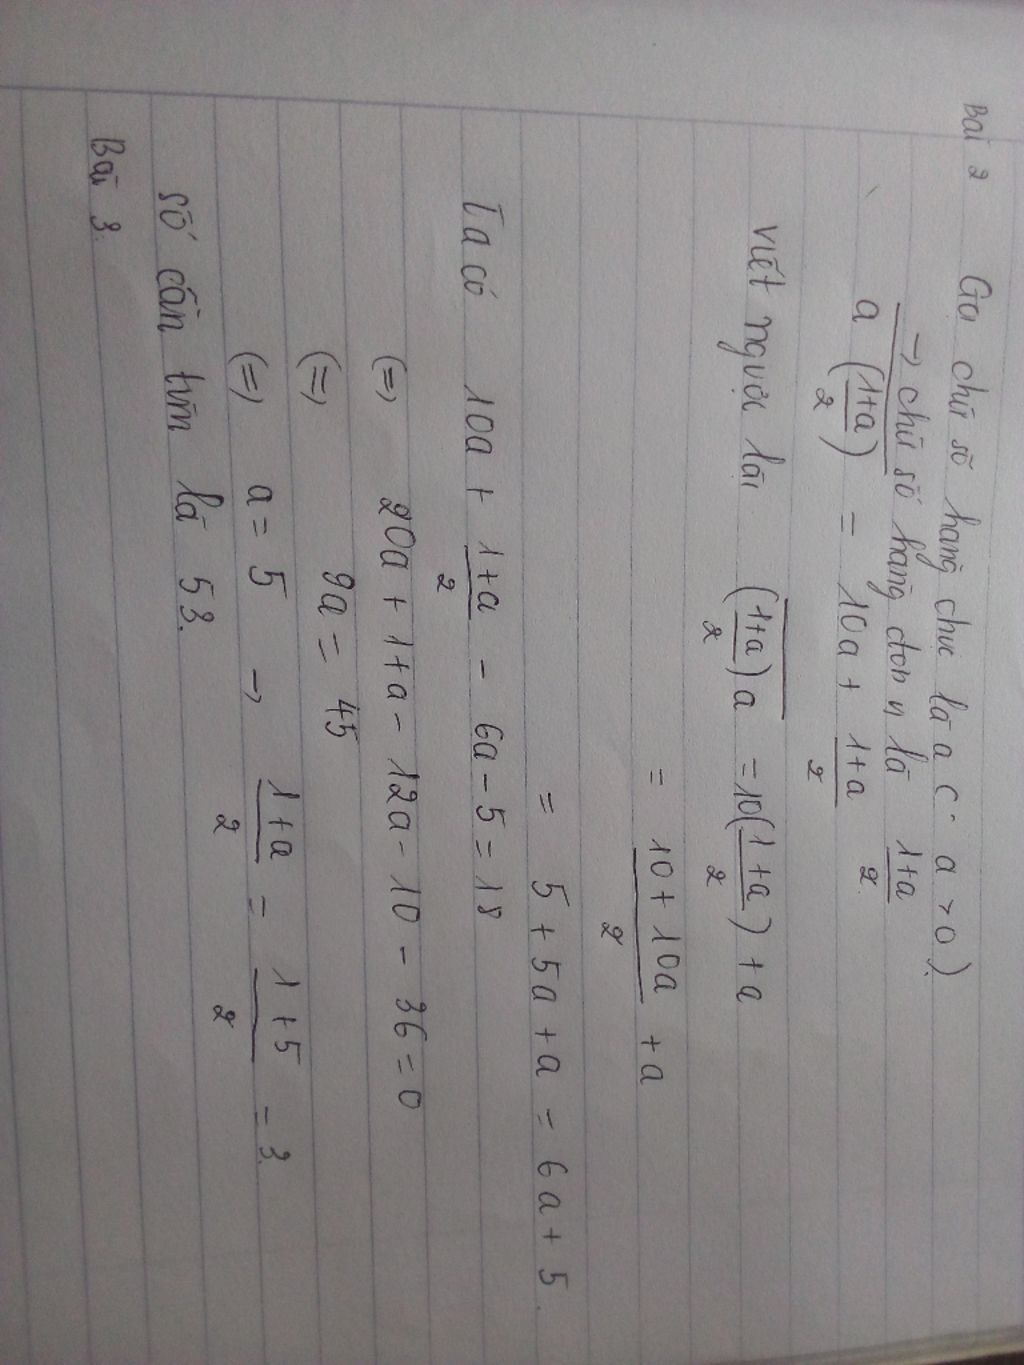 Bài 2 Gọi chữ số hàng chục là a ( a > 0 )
→ chữ số hàng đơn vị là (1+a)/2
a((1+a)/2) = 10a + (1+a)/2
viết ngược lại ((1+a)/2)a = 10((1+a)/2) + a
= (10 + 10a)/2 + a
= 5 + 5a + a = 6a + 5
Ta có 10a + (1+a)/2 - 6a - 5 = 18
(=) 20a + 1+a - 12a - 10 - 36 = 0
(=) 9a = 45
(=) a = 5 → (1+a)/2 = (1+5)/2 = 3.
số cần tìm là 53.
Bài 3.